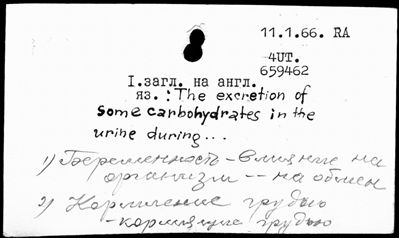 11.1.66. RA
4UT.
659462
I.загл. на англ.
яз.: The excretion of
some carbohydrates in the
urine during...
1) Беременность - влияние на
организм -- на обмен
2) Кормление грудью
- кормящие грудью